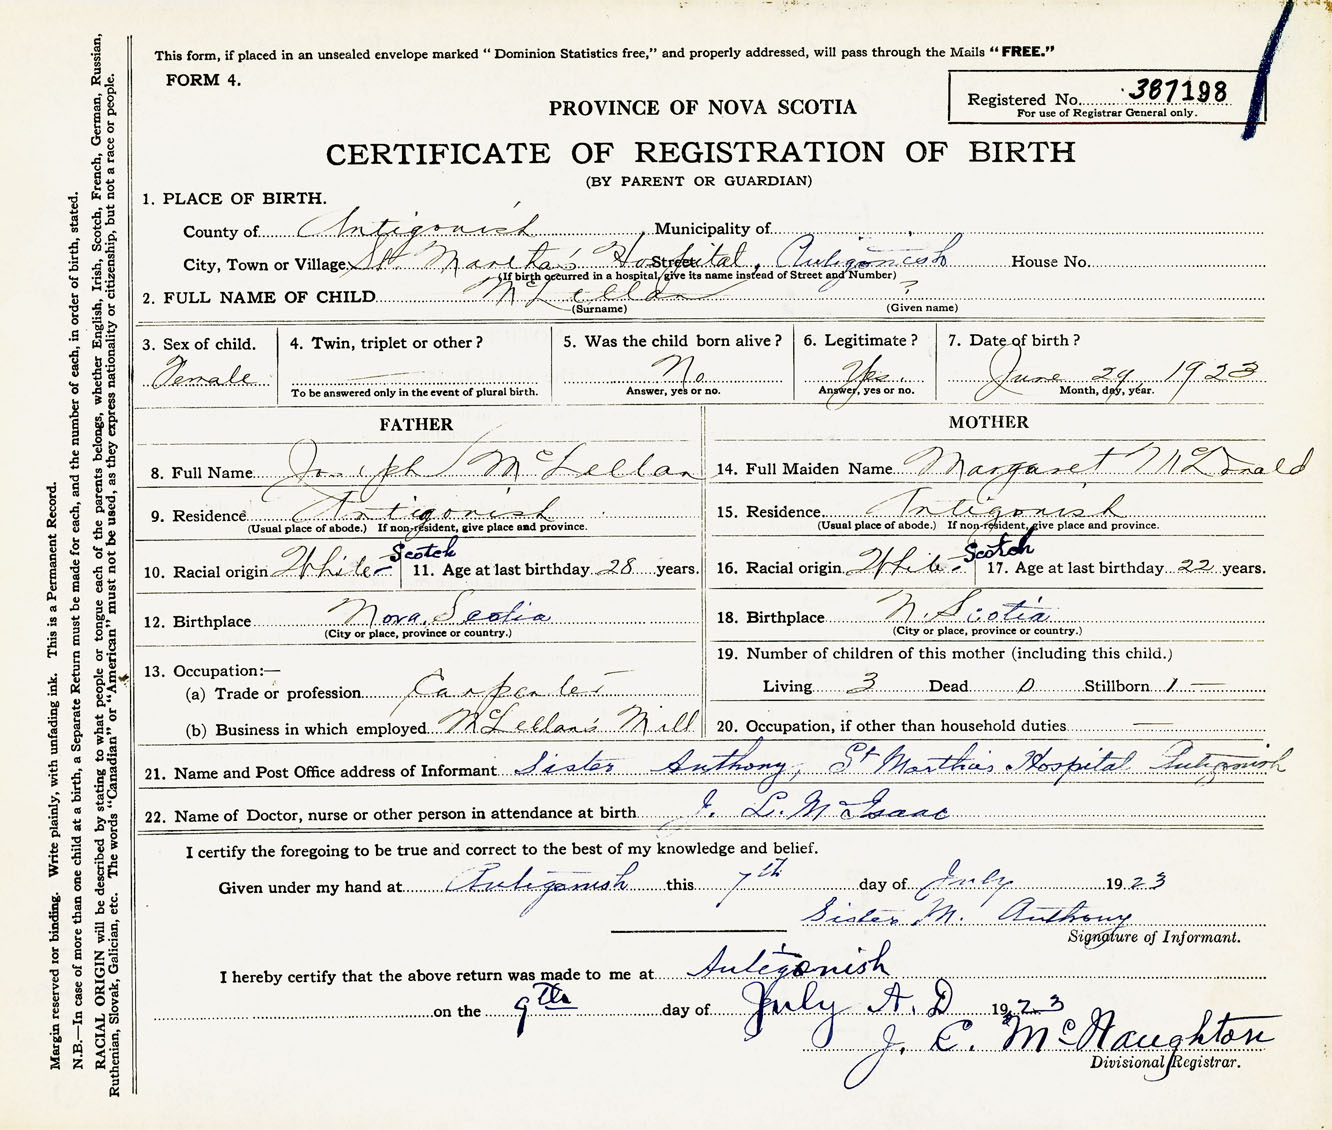 This form, if placed in an unsealed envelope marked "Dominion Statistics free," and properly addressed, will pass through the Mails "FREE."
FORM 4.
Registered No. 387198
For use of Registrar General only.
PROVINCE OF NOVA SCOTIA
CERTIFICATE OF REGISTRATION OF BIRTH
(BY PARENT OR GUARDIAN)
1. PLACE OF BIRTH.
County of Antigonish Municipality of
City, Town or Village St Martha's Hospital, Street Antigonish House No.
(If birth occurred in a hospital, give its name instead of Street and Number)
2. FULL NAME OF CHILD McLellan ?
(Surname) (Given name)
3. Sex of child. 4. Twin, triplet or other? 5. Was the child born alive? 6. Legitimate? 7. Date of birth?
Female No Yes. June 29 1923
To be answered only in the event of plural birth. Answer, yes or no. Answer, yes or no. Month, day, year.
FATHER MOTHER
8. Full Name Joseph McLellan 14. Full Maiden Name Margaret McDonald
9. Residence Antigonish 15. Residence Antigonish
(Usual place of abode.) If non-resident, give place and province. (Usual place of abode.) If non-resident, give place and province.
10. Racial origin White - Scotch 11. Age at last birthday 28 years. 16. Racial origin White - Scotch 17. Age at last birthday 22 years.
12. Birthplace Nova Scotia 18. Birthplace N. Scotia
(City or place, province or country.) (City or place, province or country.)
13. Occupation:— 19. Number of children of this mother (including this child.)
(a) Trade or profession Carpenter Living 3 Dead 0 Stillborn 1 —
(b) Business in which employed McLellan's Mill 20. Occupation, if other than household duties —
21. Name and Post Office address of Informant Sister Anthony, St Martha's Hospital Antigonish
22. Name of Doctor, nurse or other person in attendance at birth J. L. McIsaac
I certify the foregoing to be true and correct to the best of my knowledge and belief.
Given under my hand at Antigonish this 7th day of July 1923
Sister M. Anthony
Signature of Informant.
I hereby certify that the above return was made to me at Antigonish
on the 9th day of July A. D 1923
J. C. McNaughton
Divisional Registrar.
Margin reserved for binding. Write plainly, with unfading ink. This is a Permanent Record.
N.B.—In case of more than one child at a birth, a Separate Return must be made for each, and the number of each, in order of birth, stated.
RACIAL ORIGIN will be described by stating to what people or tongue each of the parents belongs, whether English, Irish, Scotch, French, German, Russian,
Ruthenian, Slovak, Galician, etc. The words "Canadian" or "American" must not be used, as they express nationality or citizenship, but not a race or people.